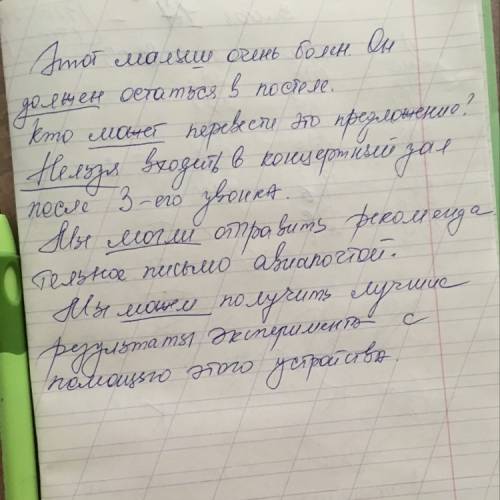 Этот малыш очень болен. Он
должен остаться в постеле.
Кто может перевести это предложение?
Нельзя входить в концертный зал
после 3-его звонка.
Мы могли отправить рекоменда
тельное письмо авиапочтой.
Мы можем получить лучшие
результаты эксперимента с
помощью этого устройства.